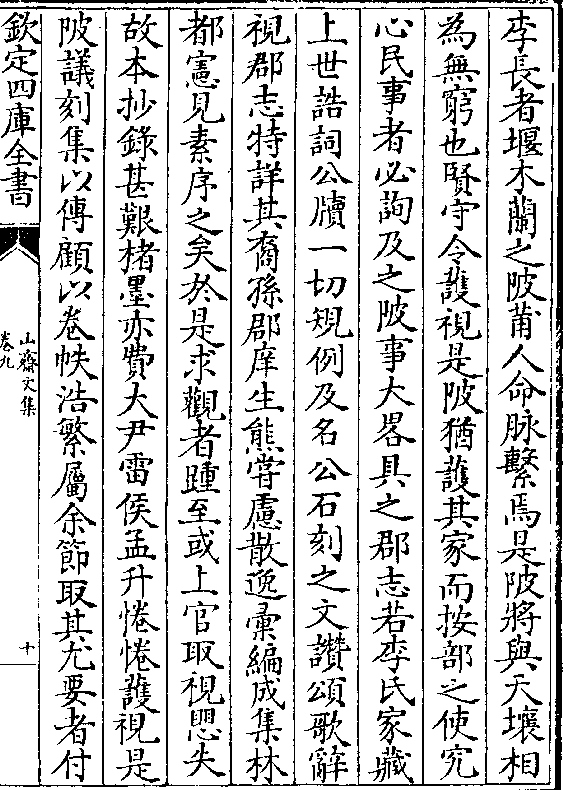 李長者堰木蘭之陂莆人命脉繫焉是陂將與天壤相
為無窮也賢守令護視是陂猶護其家而按部之使究
心民事者必詢及之陂事大畧具之郡志若李氏家藏
上世誥詞公牘一切規例及名公石刻之文讚頌歌辭
視郡志特詳其裔孫郡庠生熊嘗慮散逸彙編成集林
都憲見素序之矣於是求觀者踵至或上官取視思失
故本抄錄甚艱楮墨亦費大尹雷侯孟升惓惓護視是
陂議刻集以傳顧以卷帙浩繁屬余節取其尤要者付
欽定四庫全書
山齋文集
卷九
十